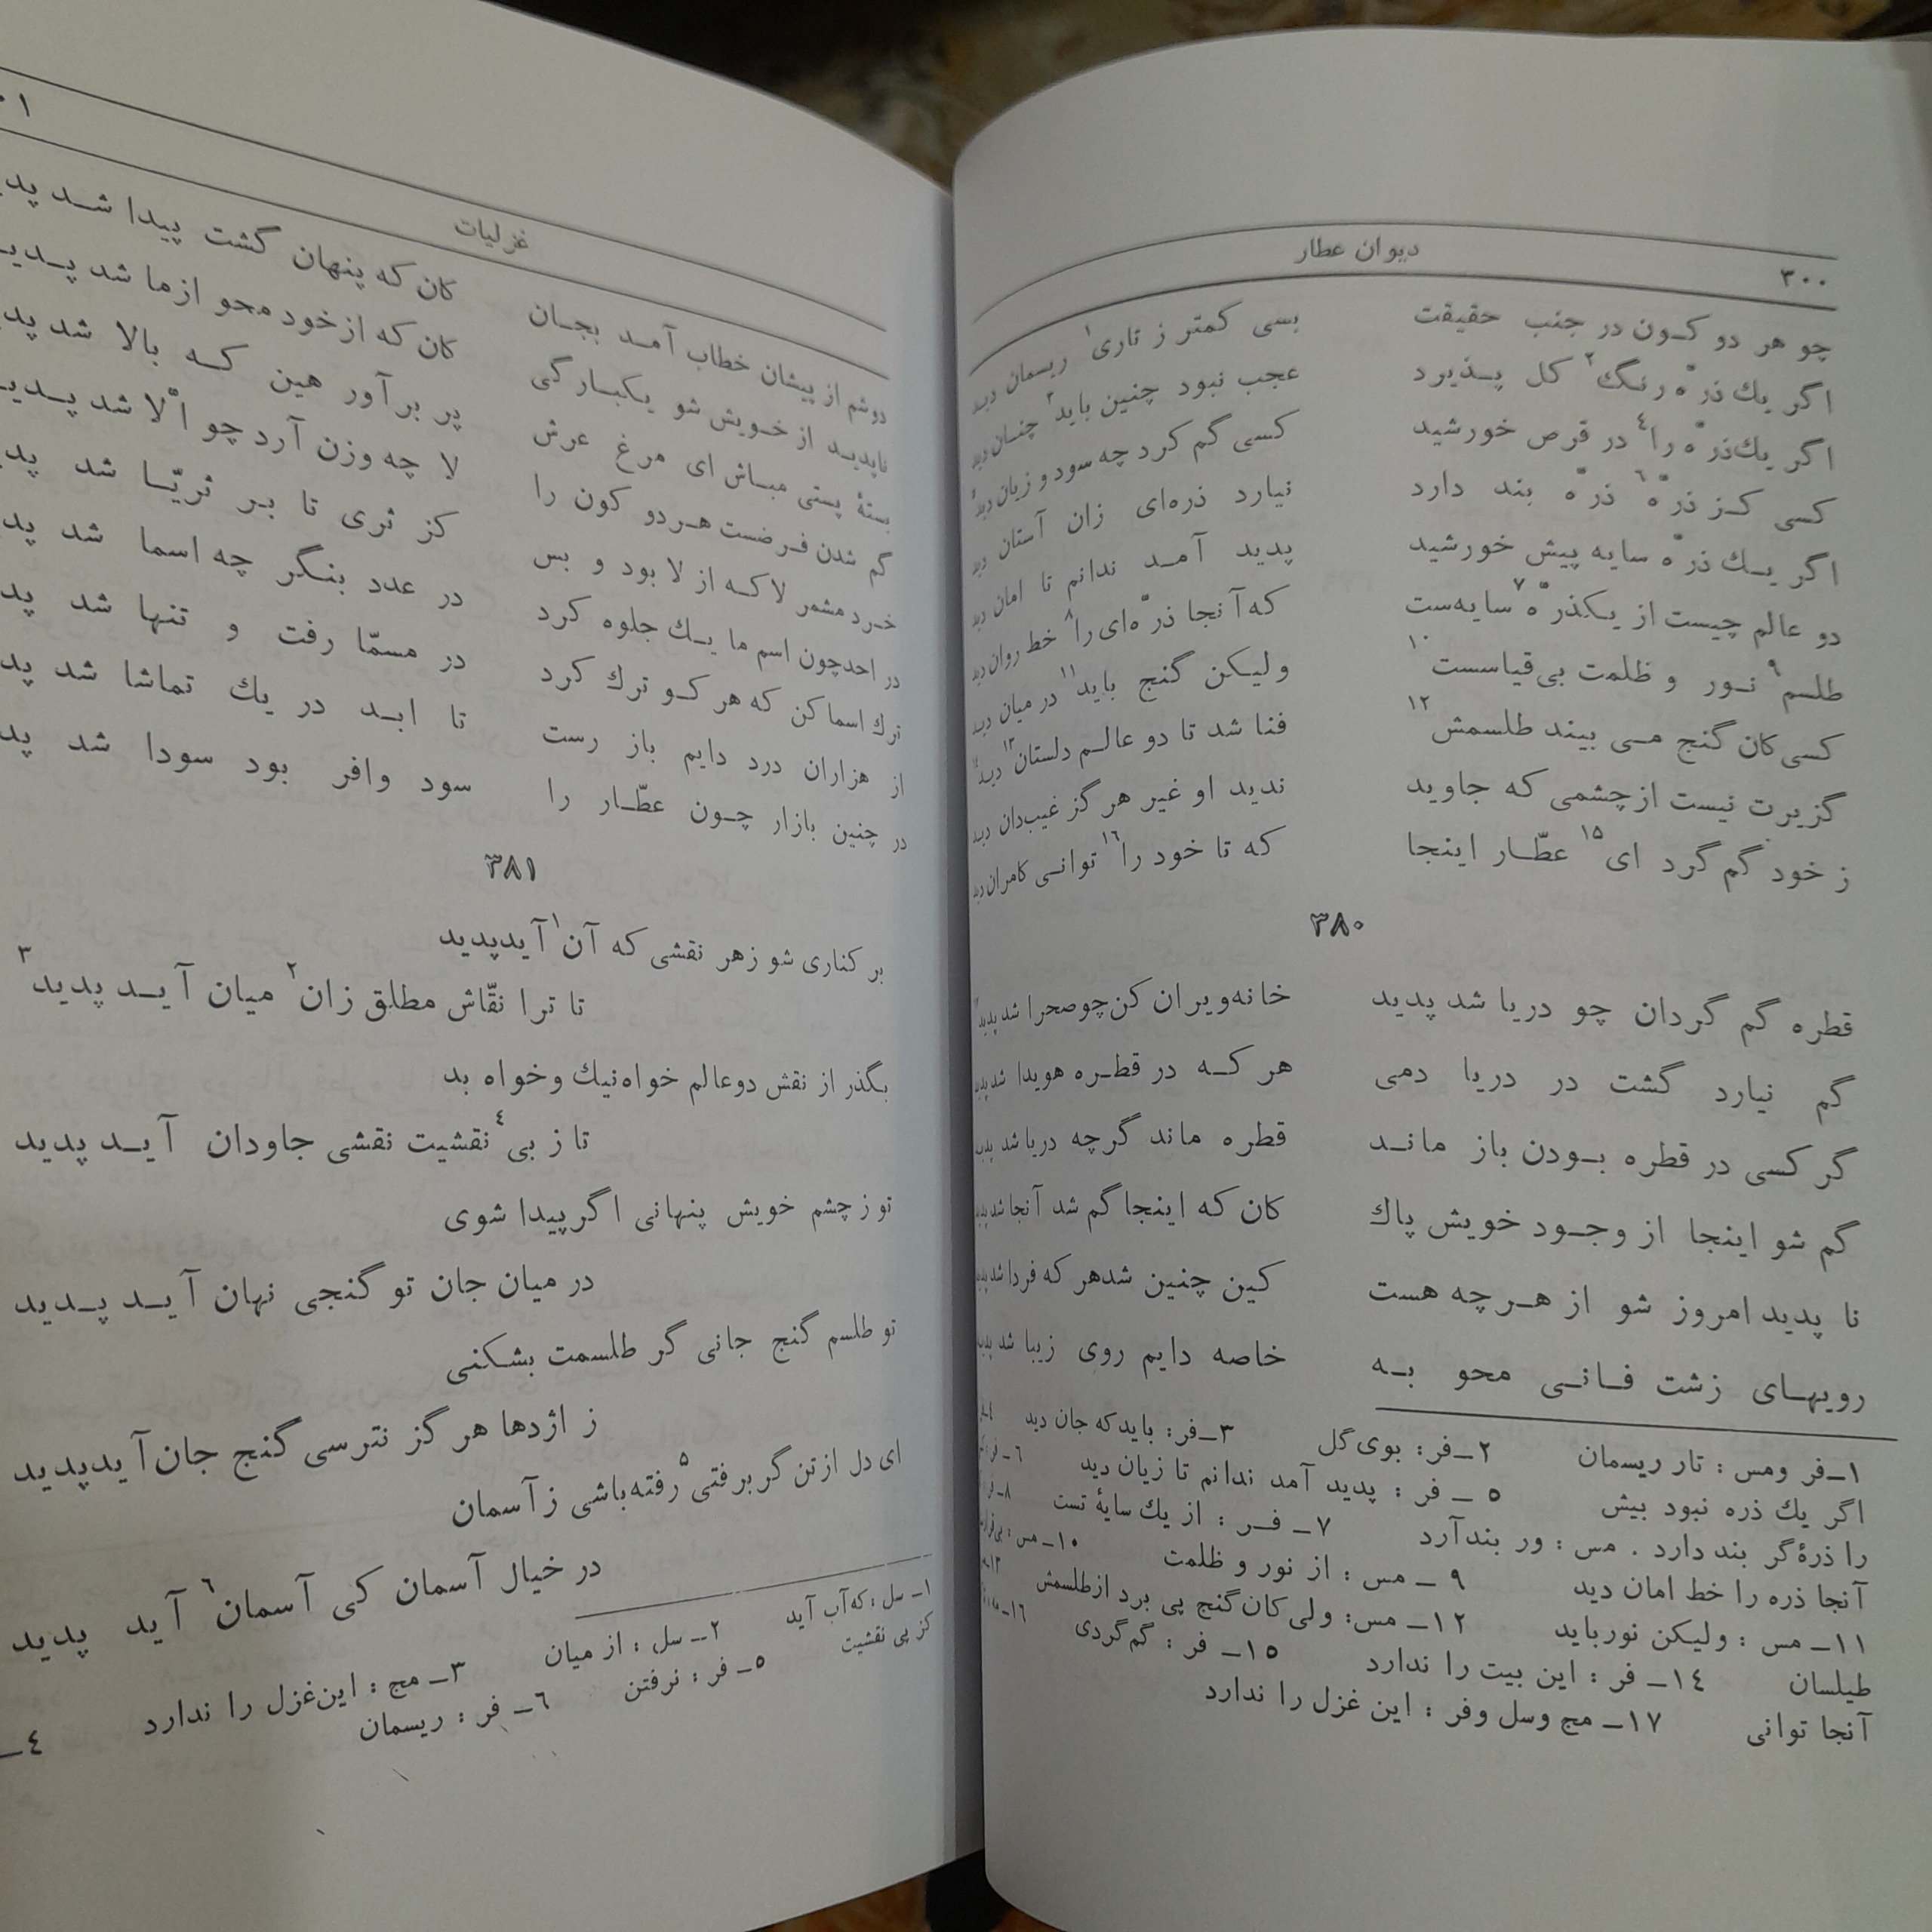 ۳۰۰
دیوان عطار
چو هر دو کون در جنب حقیقت بسی کمتر ز تاری۱ ریسمان دید
اگر یك ذرّه رنگ۲ کل پذیرد عجب نبود چنین باید۳ چنان دید
اگر یك‌ذرّه را۴ در قرص خورشید کسی گم کرد چه سود و زیان دید۵
کسی کز ذرّه۶ ذرّه بند دارد نیارد ذره‌ای زان آستان دید
اگر یك ذرّه سایه پیش خورشید پدید آمد ندانم تا امان دید
دو عالم چیست از یكذرّه۷ سایه‌ست که آنجا ذرّه‌ای را۸ خط روان دید
طلسم۹ نور و ظلمت بی‌قیاسست۱۰ ولیکن گنج باید۱۱ در میان دید
کسی کان گنج می بیند طلسمش۱۲ فنا شد تا دو عالم دلستان۱۳ دید۱۴
گزیرت نیست از چشمی که جاوید ندید او غیر هرگز غیب‌دان دید
ز خود گم گرد ای۱۵ عطّار اینجا که تا خود را۱۶ توانی کامران دید
۳۸۰
قطره گم گردان چو دریا شد پدید خانه‌ویران کن‌چوصحرا شد پدید۱۷
گم نیارد گشت در دریا دمی هر که در قطره هویدا شد پدید
گر کسی در قطره بودن باز ماند قطره ماند گرچه دریا شد پدید
گم شو اینجا از وجود خویش پاك کان که اینجا گم شد آنجا شد پدید
نا پدید امروز شو از هرچه هست کین چنین شدهر که فردا شد پدید
رویهای زشت فانی محو به خاصه دایم روی زیبا شد پدید
۱ـ فر ومس : تار ریسمان ۲ـ فر: بوی گل ۳ـ فر: باید که جان دید
اگر یك ذره نبود بیش ۵ ـ فر : پدید آمد ندانم تا زیان دید ۶ ـ فر :
را ذرهٔ گر بند دارد . مس : ور بند آرد ۷ـ فر : از یك سایهٔ تست ۸ـ
آنجا ذره را خط امان دید ۹ ـ مس : از نور و ظلمت ۱۰ـ مس :
۱۱ـ مس : ولیکن نورباید ۱۲ـ مس: ولی کان گنج پی برد از طلسمش ۱۳ـ
طیلسان ۱۴ـ فر : این بیت را ندارد ۱۵ـ فر : گم گردی ۱۶ـ
آنجا توانی ۱۷ـ مج وسل وفر : این غزل را ندارد
غزلیات
دوشم از پیشان خطاب آمد بجان کان که پنهان گشت پیدا شد
ناپدید از خویش شو یکبارگی کان که از خود محو از ما شد
بستهٔ پستی مباش ای مرغ عرش پر بر آور هین که بالا شد
گم شدن فرضست هردو کون را لا چه وزن آرد چو الّا شد
خرد مشمر لا که از لا بود و بس کز ثری تا بر ثریّا شد
در احد چون اسم ما یك جلوه کرد در عدد بنگر چه اسما شد
ترك اسما کن که هر کو ترك کرد در مسمّا رفت و تنها شد
از هزاران درد دایم باز رست تا ابد در یك تماشا شد
در چنین بازار چون عطّار را سود وافر بود سودا شد
۳۸۱
بر کناری شو زهر نقشی که آن۱ آیدپدید
تا ترا نقّاش مطلق زان۲ میان آید پدید۳
بگذر از نقش دوعالم خواه‌نیك وخواه بد
تا ز بی۴ نقشیت نقشی جاودان آید پدید
تو ز چشم خویش پنهانی اگر پیدا شوی
در میان جان تو گنجی نهان آید پدید
تو طلسم گنج جانی گر طلسمت بشکنی
ز اژدها هرگز نترسی گنج جان آیدپدید
ای دل ازتن گر برفتی۵ رفته‌باشی زآسمان
در خیال آسمان کی آسمان۶ آید پدید
۱ـ سل : که آب آید ۲ـ سل : از میان ۳ـ مج : این غزل را ندارد ۴ـ
کز پی نقشیت ۵ـ فر : نرفتن ۶ـ فر : ریسمان